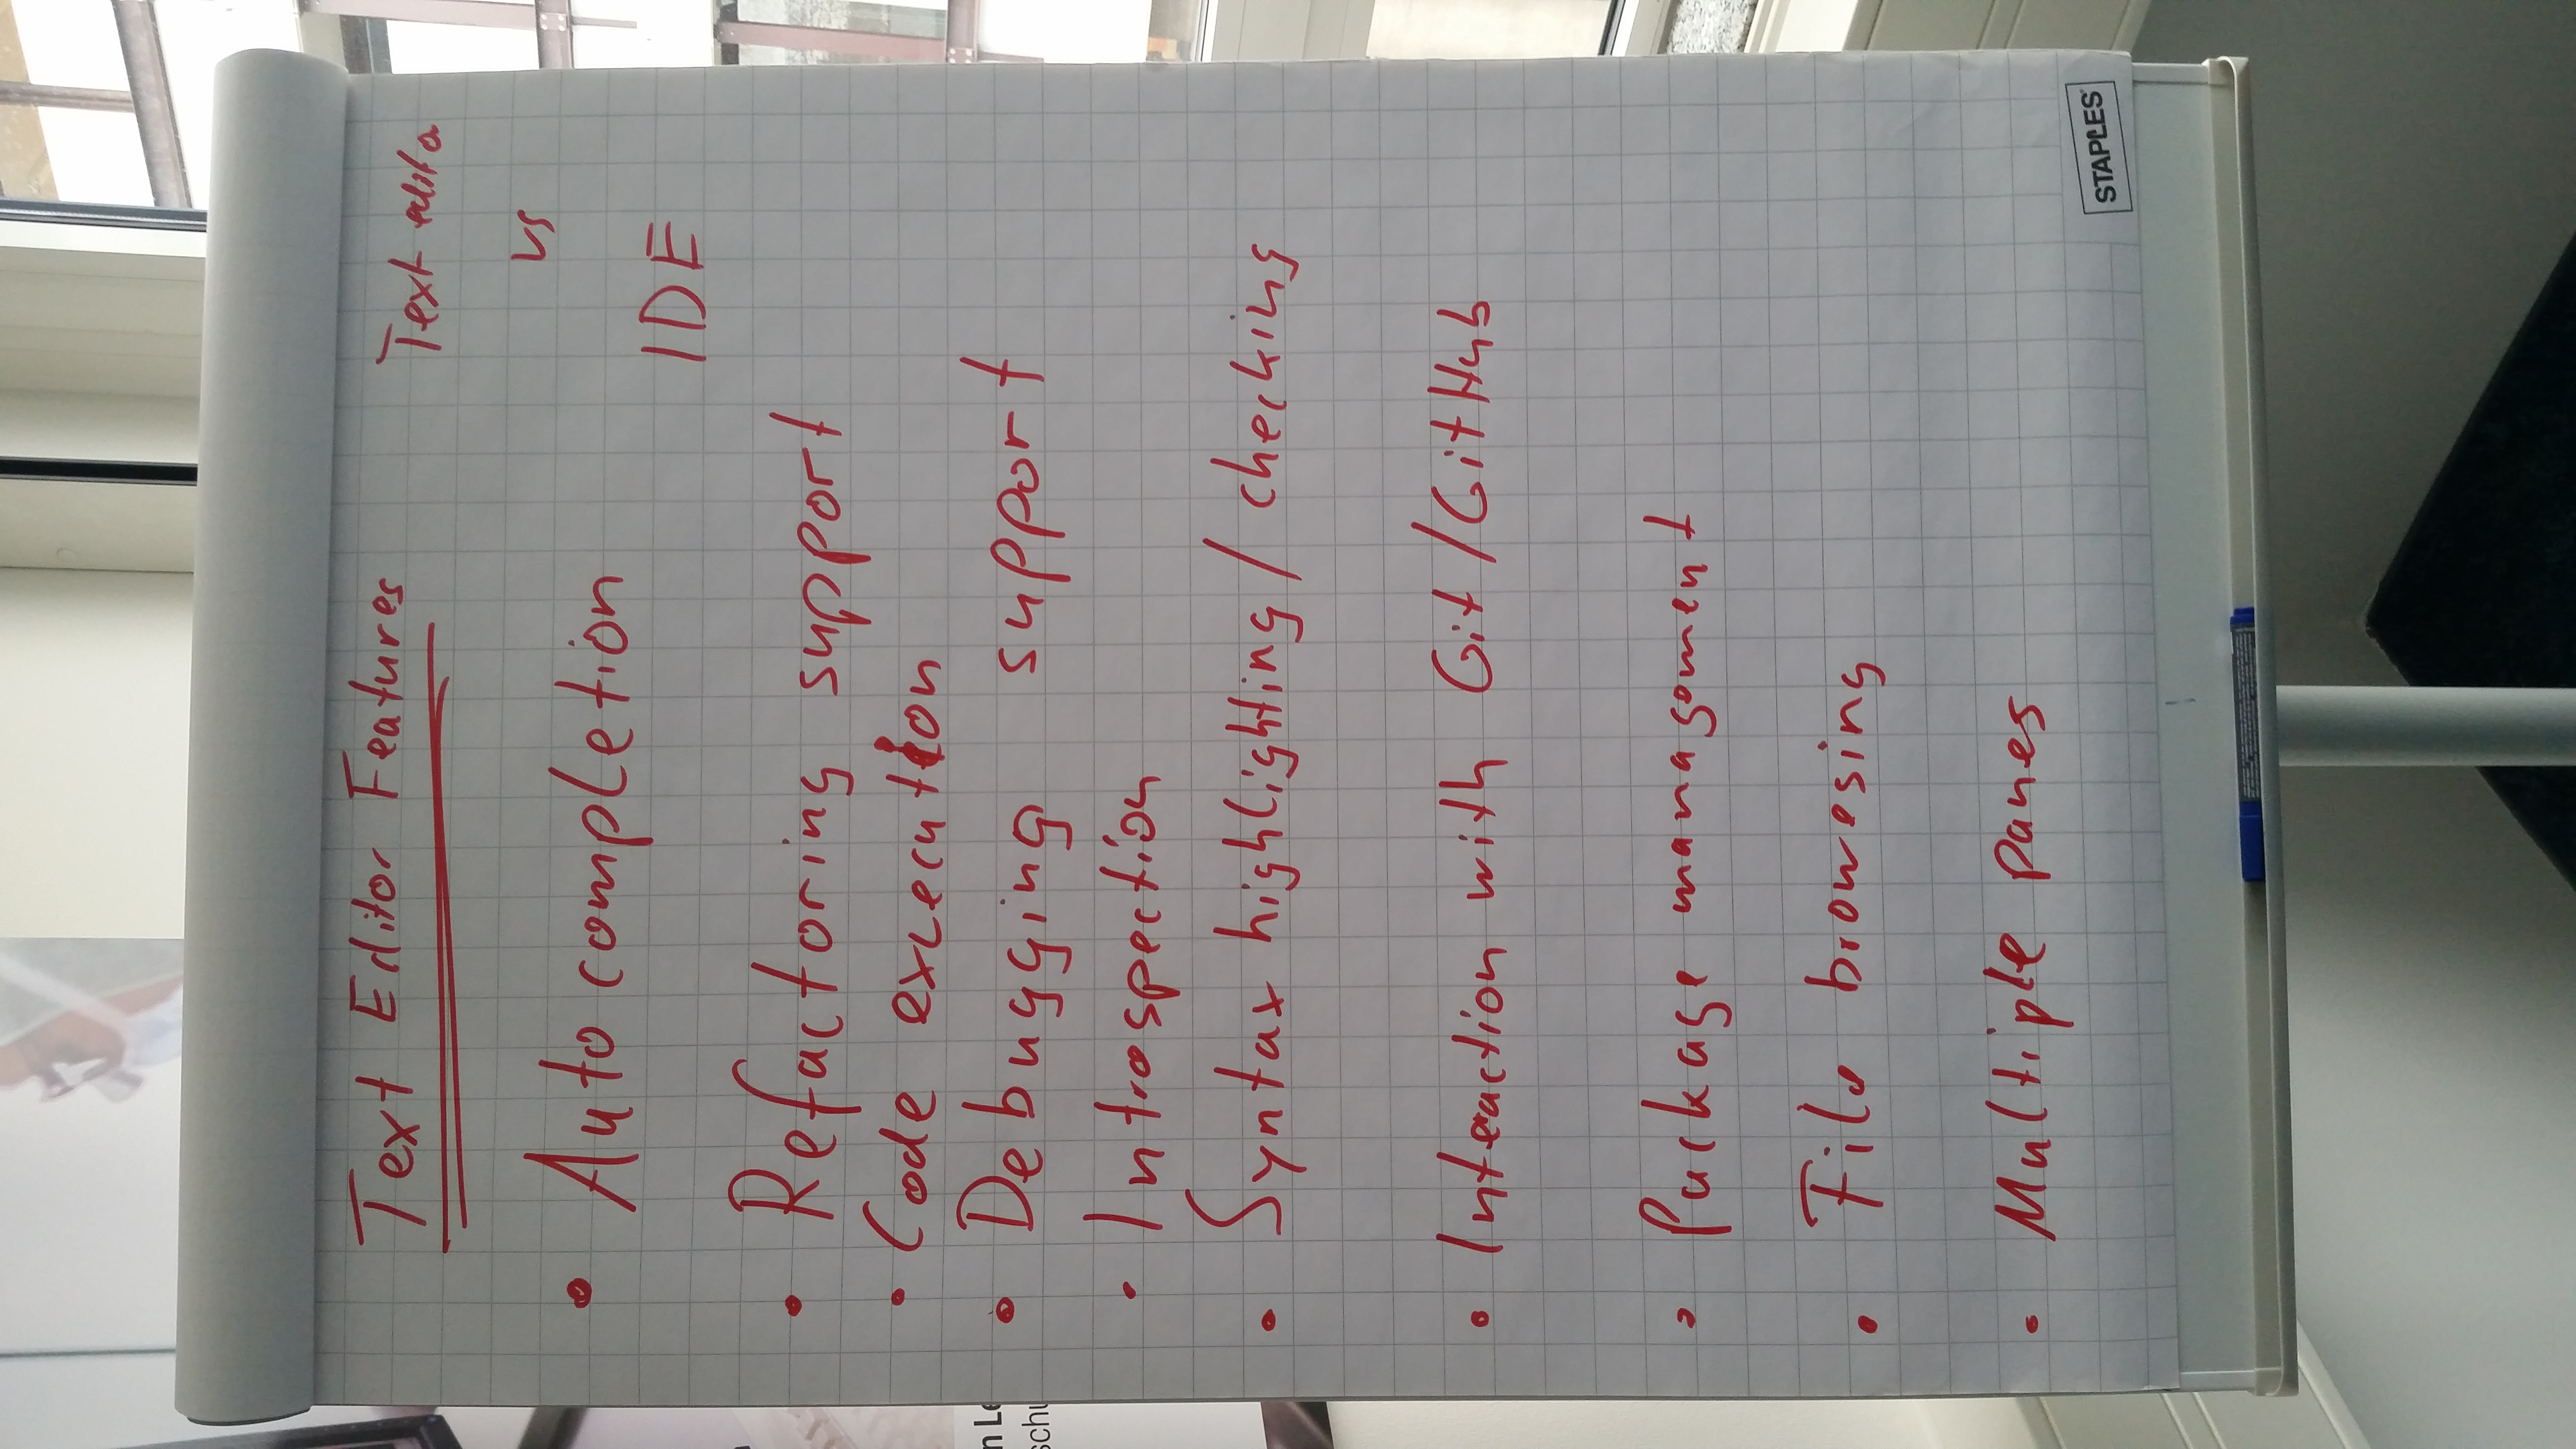 Text Editor Features
Text editor
vs
IDE
• Auto completion
• Refactoring support
• Code excecution
• Debugging support
• Introspection
• Syntax highlighting / checking
• Interaction with Git / GitHub
• Package management
• File browesing
• Multiple panes
STAPLES
n Le
schu